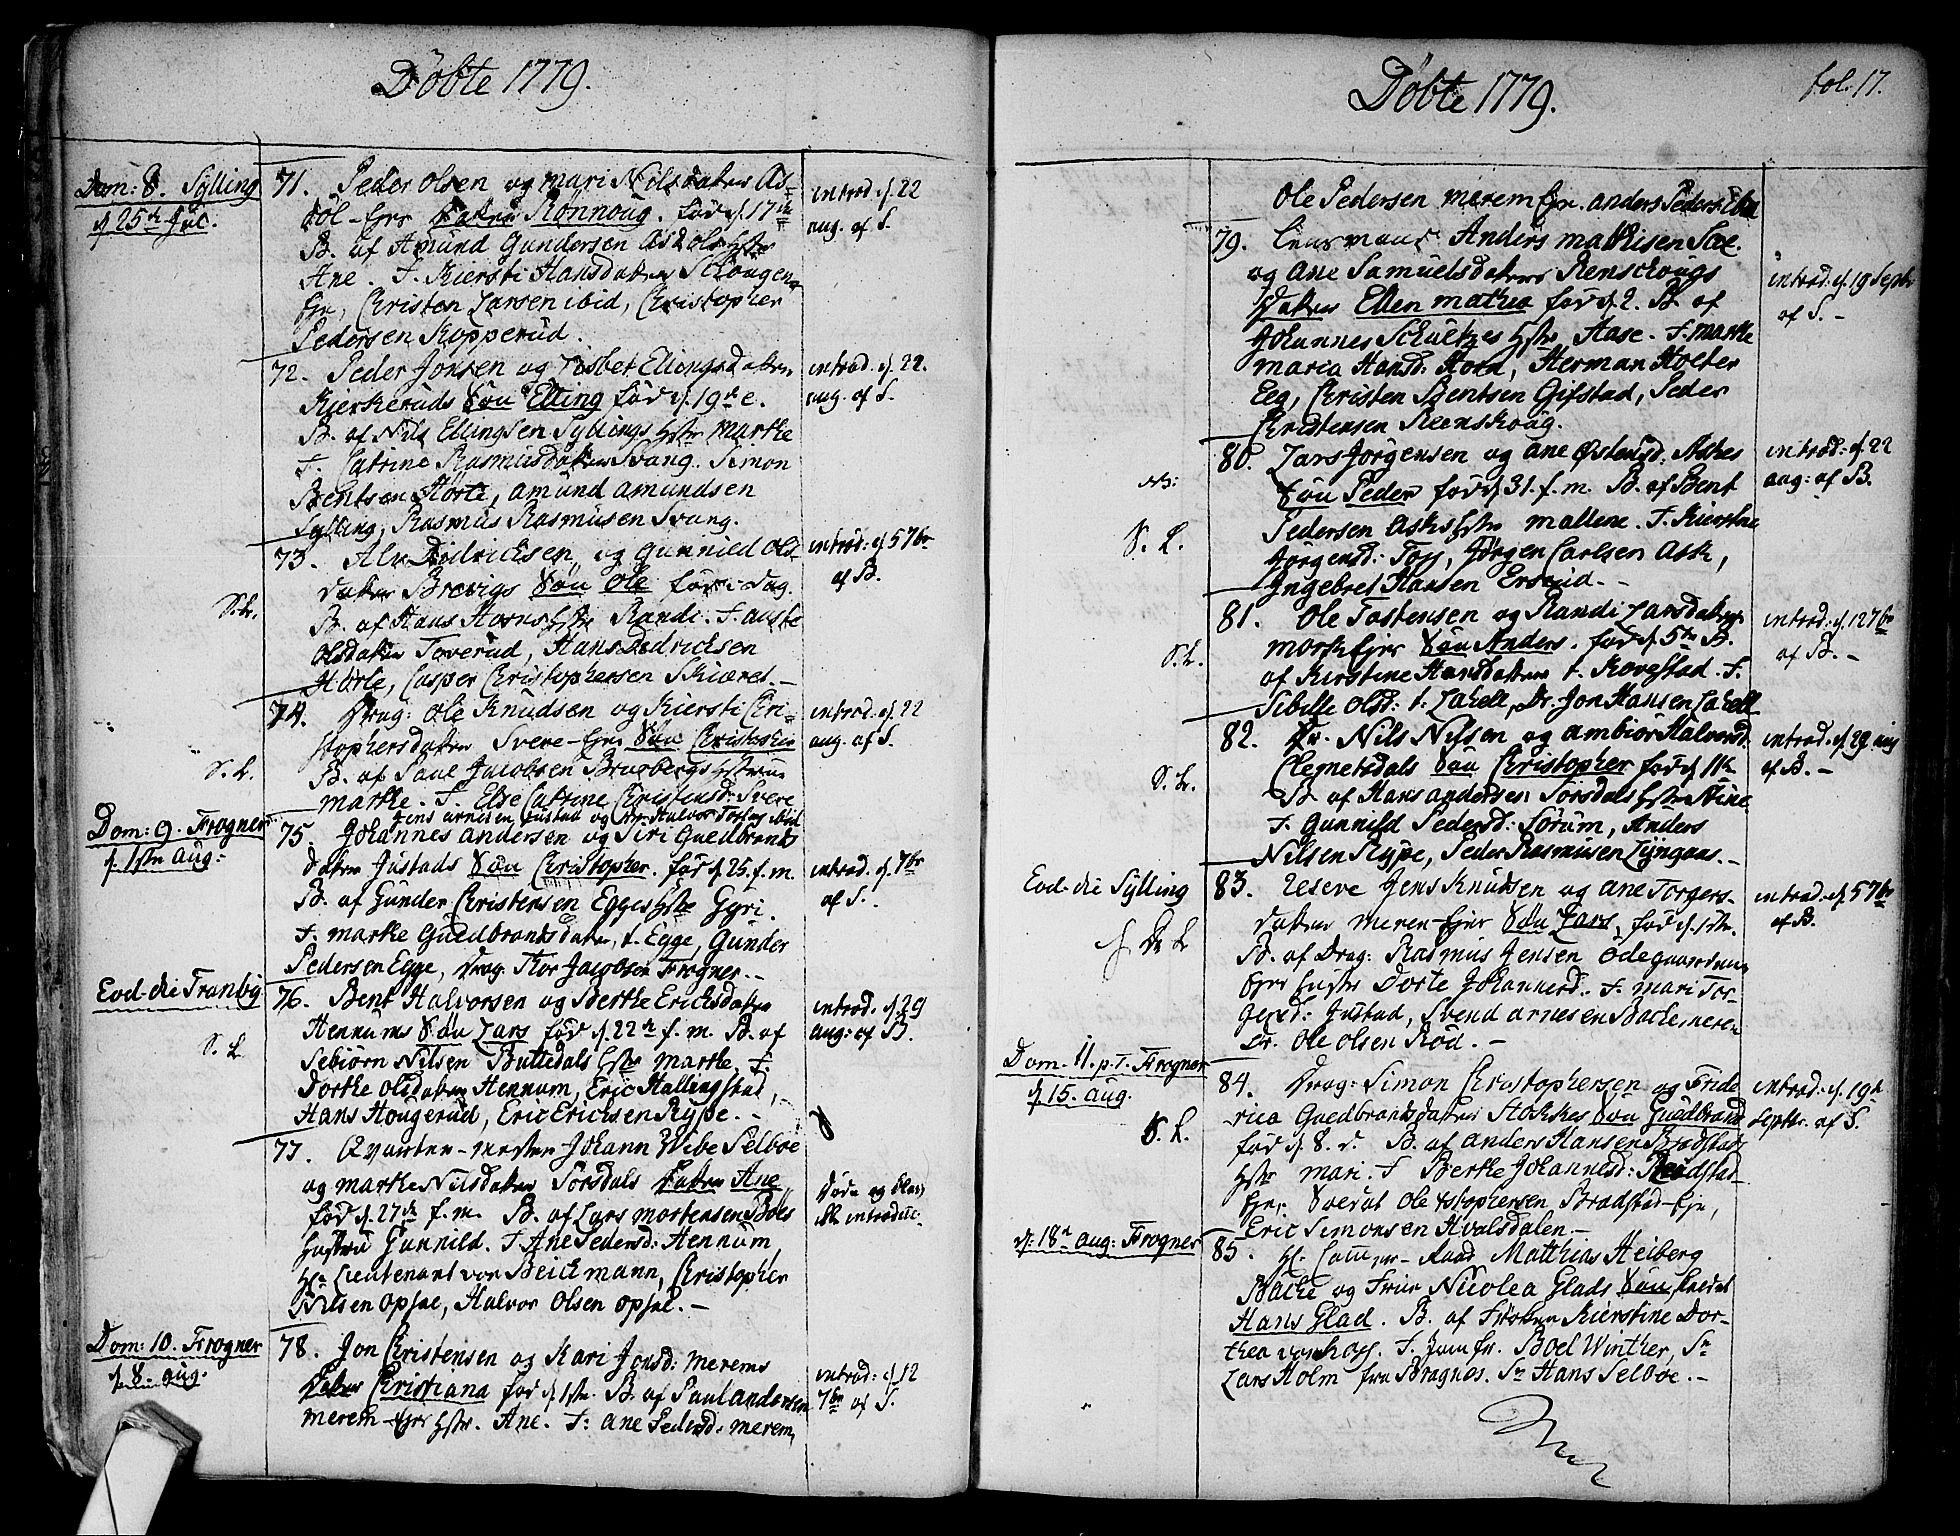 Døbte 1779.
Dom: 8. Sylling
d 25de Jul.
71. Peder Olsen og Mari Nilsdatter As-
døl-Ejer Datter Rønnoug. fød d. 17de
B. af Amund Gundersen Asdøls Hstr
Ane. F. Kiersti Hansdatter Schougen-
Ejr, Christen Larsen ibid, Christopher
Pedersen Kopperud.
introd. d. 22
aug. af S.
72. Peder Jonsen og Lisbet Ellingsdatter
Kierkeruds Søn Elling fød d. 19de.
B. af Nils Ellingsen Syllings Hstr Marthe
F. Catrine Rasmusdatter Svang. Simon
Bentsen Hörte, Amund Amundsen
Sylling, Rasmus Rasmusen Svang.
introd. d. 22.
aug. af S.
73. Alv Didricksen og Gunnild Ols-
datter Brevigs Søn Ole fød i Dag.
B. af Hans Horns Hstr Randi. F. Anste
Olsdatter Toverud, Hans Didricksen
Hörte, Casper Christophersen Skiæret.-
introd: d 5 7br
af B.
S. L.
74. Drag: Ole Knudsen og Kiersti Chri-
stophersdatter Svere-Ejer Søn Christopher
B. af Paul Jacobsen Bragbergs Hstrue
Marthe. F. Else Catrine Christensd: Svere
Jens Arnesen Justad og Halvor ibid
introd. d. 22
aug. af S.
S. L.
Dom: 9. Frogner
d. 1ste aug:
75. Johannes Andersen og Siri Guedbrands
datter Justads Søn Christopher. fød d 25. f. m.
B. af Gunder Christensen Egges Hstr Gyri.
F. Marthe Guedbrandsdatter, t. Egge, Gunder
Pedersen Egge, Drag: Thor Jacobsen Frogner.-
introd. d. 7br
af S.
Eod. die Tranby
76. Bent Halvorsen og Berthe Ericksdatter
Hennums Søn Lars fød d. 22de f. m. B. af
Sebiörn Nilsen Buttedals Hstr Marthe, F.
Dorthe Olsdatter Hennum, Eric Hallingstad,
Hans Hougerud, Eric Ericksen Rype.-
introd. d. 29
aug: af B.
S. L
77. Qvarteer-mester Johann Wibe Selboe
og Marthe Nilsdatter Sørsdals Datter Ane
fød d. 27de f. m. B. af Lars Mortensen Böls
Hustru Gunnild. F. Ane Pedersd: Hennum,
Hr. Lieutenant von Beichmann, Christopher
Nilsen Opsal, Halvor Olsen Opsal.-
Døde og blev
ikke introduc.
Dom: 10. Frogner
d. 8. aug.
78. Jon Christensen og Kari Jonsd: Merems
Datter Christiana fød d 1ste. B. af Paul Andersen
Merem-Ejer Hstr. Ane. F. Ane Pedersd: Merem,
introd: d 12
7br af S.
Døbte 1779.
fol. 17.
Ole Pedersen Merem Ejr. Anders Peders:
79. Lensmand Anders Mathisen Sae.
og Ane Samuelsdatters Renschougs
Datter Ellen Mathea fød d. 2. B. af
Johannes Schultzes Hstr Aase. F. Marthe
Maria Hansd: Horn, Herman Holter
Eeg, Christen Bentsen Gifstad, Peder
Christensen Reenskoug.
introd. d. 19 Septr
af S.-
80. Lars Jörgensen og Ane Østensd: Askes
Søn Peder fød d 31. f. m. B. af Bent
Pedersen Asks Hstr Mallene. F. Kierstne
Jörgensd: Toss, Jörgen Carlsen Ask,
Ingebret Hansen Ersrud.-
introd: d. 22
aug: af B.
NB:
S. L.
81. Ole Tostensen og Randi Larsdatter
Mork Ejer Søn Anders. fød d. 5te B.
af Kirstine Hansdatter t. Kovestad. F.
Sibille Olsd: t. Lahell, Dr. Jon Hansen Lahell
introd: d. 12 7br
af B.-
S. L.
82. Dr. Nils Nilsen og Ambior Halvorsd.
Clemetsdals Søn Christopher fød d 11te
B. af Hans Andersen Sørsdals Hstr Stine
F. Gunnild Pedersd: Sörum, Anders
Nilsen Rype, Peder Rasmusen Lyngaas.-
introd. d. 29 aug
af B.-
S. L.
Eod. die Sylling
83. Reserve Jens Knudsen og Ane Torgers-
datter Meren-Ejer Søn Lars, fød d. 1ste.
B. af Drag: Rasmus Jensen Ödegaardens
Ejers Hustr Dorte Johannesd. F. Mari Tor-
gersd: Justad, Svend Arnesen Bache meren
Dr. Ole Olsen Röd.-
introd. d. 5 7br
af B.
Dom. 11. p. T. Frogner
d 15. aug.
84. Drag: Simon Christophersen og Fride
rica Guedbrandsdatter Stokkes Søn Guedbrand
fød d. 8. d. B. af Anders Hansen Bradstads
Hstr Mari. F Berthe Johannesd: Bradstad-
Ejer. Ole Xstophersen Bradstad-Ejr,
Eric Simonsen Hvalsdalen.-
introd: d. 19de
Septr. af S.
S. L.
d. 18de aug: Frogner
85. Hr. Cammer-Raad Matthias Heiberg
Bache og Frue Nicolea Glads Søn kaldet
Hans Glad. B. af Fröken Kierstine Dor-
thea von Koss. F. Jomfr. Boel Winther, Sr
Lars Holm fra Bragnes. Sr Hans Selboe.-